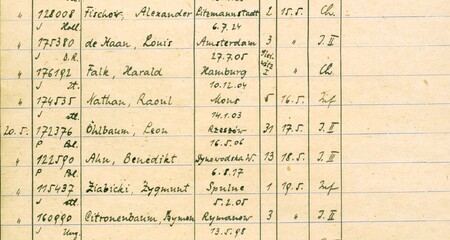 " 128008 Fischow, Alexander Litzmannstadt 2 15.5. Ch.
J Holl. 6.7.24
" 175380 de Haan, Louis Amsterdam 3 " I. II
J D.R. 27.7.05
" 176192 Falk, Harald Hamburg 2 " Ch.
J St. 10.12.04
" 174535 Nathan, Raoul Mons 5 16.5. Inf
J stl. 14.1.03
20.5. 172376 Öhlbaum, Leon Rzeszów 31 17.5. I. II
P Bl. 16.5.06
" 122590 Ahn, Benedikt W. 13 18.5. I. III
P Bl. 6.8.17
" 115437 Ziabicki, Zygmunt 1 19.5. Inf
J stl. 5.2.05
" 160990 Citronenbaum, Szymon Rymanow 3 " I. II
J Ung. 13.5.98